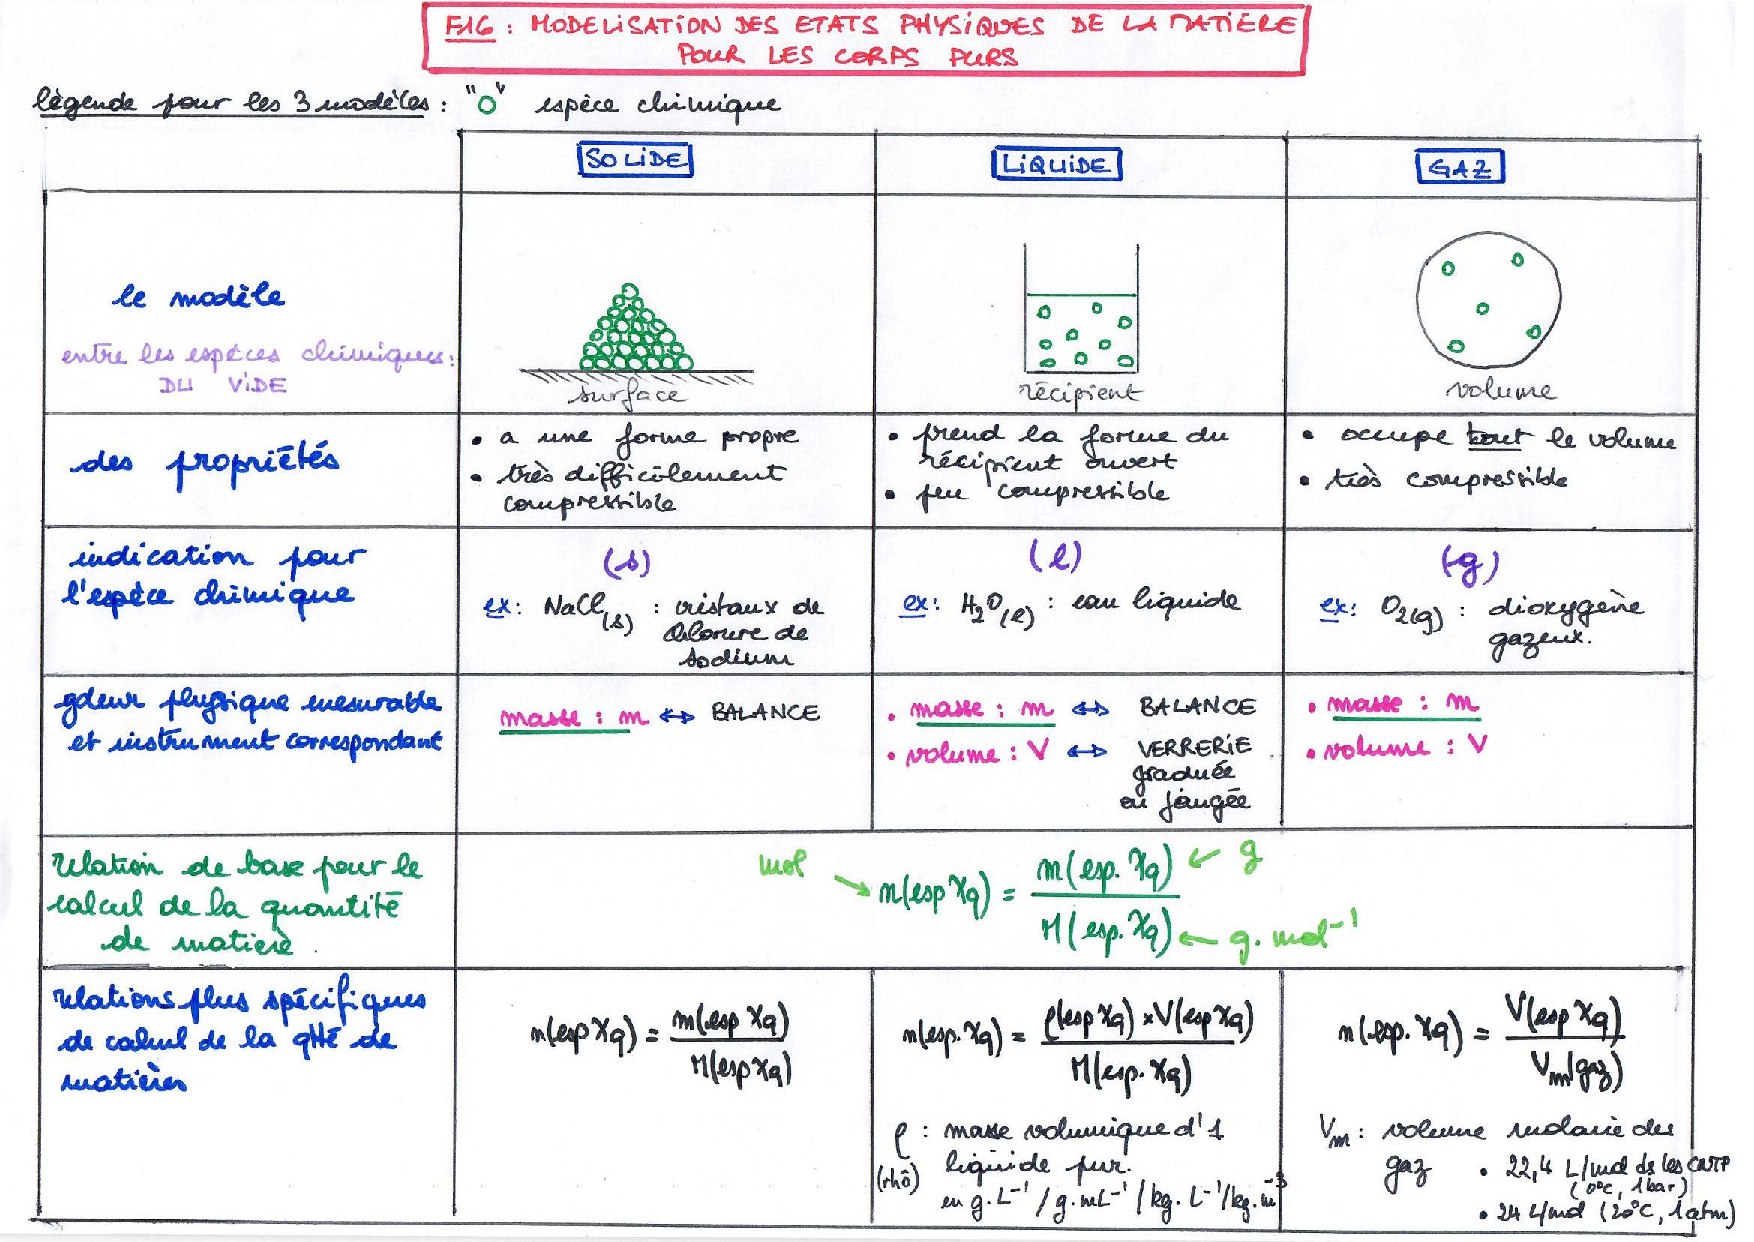 F16 : MODELISATION DES ETATS PHYSIQUES DE LA MATIÈRE
POUR LES CORPS PURS
légende pour les 3 modèles : "O" espèce chimique
SOLIDE
LIQUIDE
GAZ
le modèle
entre les espèces chimiques :
DU VIDE
surface
récipient
volume
des propriétés
• a une forme propre
• très difficilement
compressible
• prend la forme du
récipient ouvert
• peu compressible
• occupe tout le volume
• très compressible
indication pour
l'espèce chimique
(s)
ex: NaCl(s) : cristaux de
chlorure de
sodium
(l)
ex: H2O(l) : eau liquide
(g)
ex: O2(g) : dioxygène
gazeux.
gdeur physique mesurable
et instrument correspondant
masse : m ↔ BALANCE
• masse : m ↔ BALANCE
• volume : V ↔ VERRERIE
graduée
ou jaugée
• masse : m
• volume : V
relation de base pour le
calcul de la quantité
de matière
mol → n(esp Xq) = m(esp. Xq) ← g
M(esp. Xq) ← g.mol⁻¹
relations plus spécifiques
de calcul de la qtté de
matières
n(esp Xq) = m(esp Xq)
M(esp Xq)
n(esp. Xq) = ρ(esp Xq) × V(esp Xq)
M(esp. Xq)
ρ : masse volumique d'1
(rhô) liquide pur.
en g.L⁻¹ / g.mL⁻¹ / kg.L⁻¹ / kg.m⁻³
n(esp. Xq) = V(esp Xq)
Vm(gaz)
Vm : volume molaire des
gaz • 22,4 L/mol ds les CNTP
(0°C, 1bar)
• 24 L/mol (20°C, 1atm)